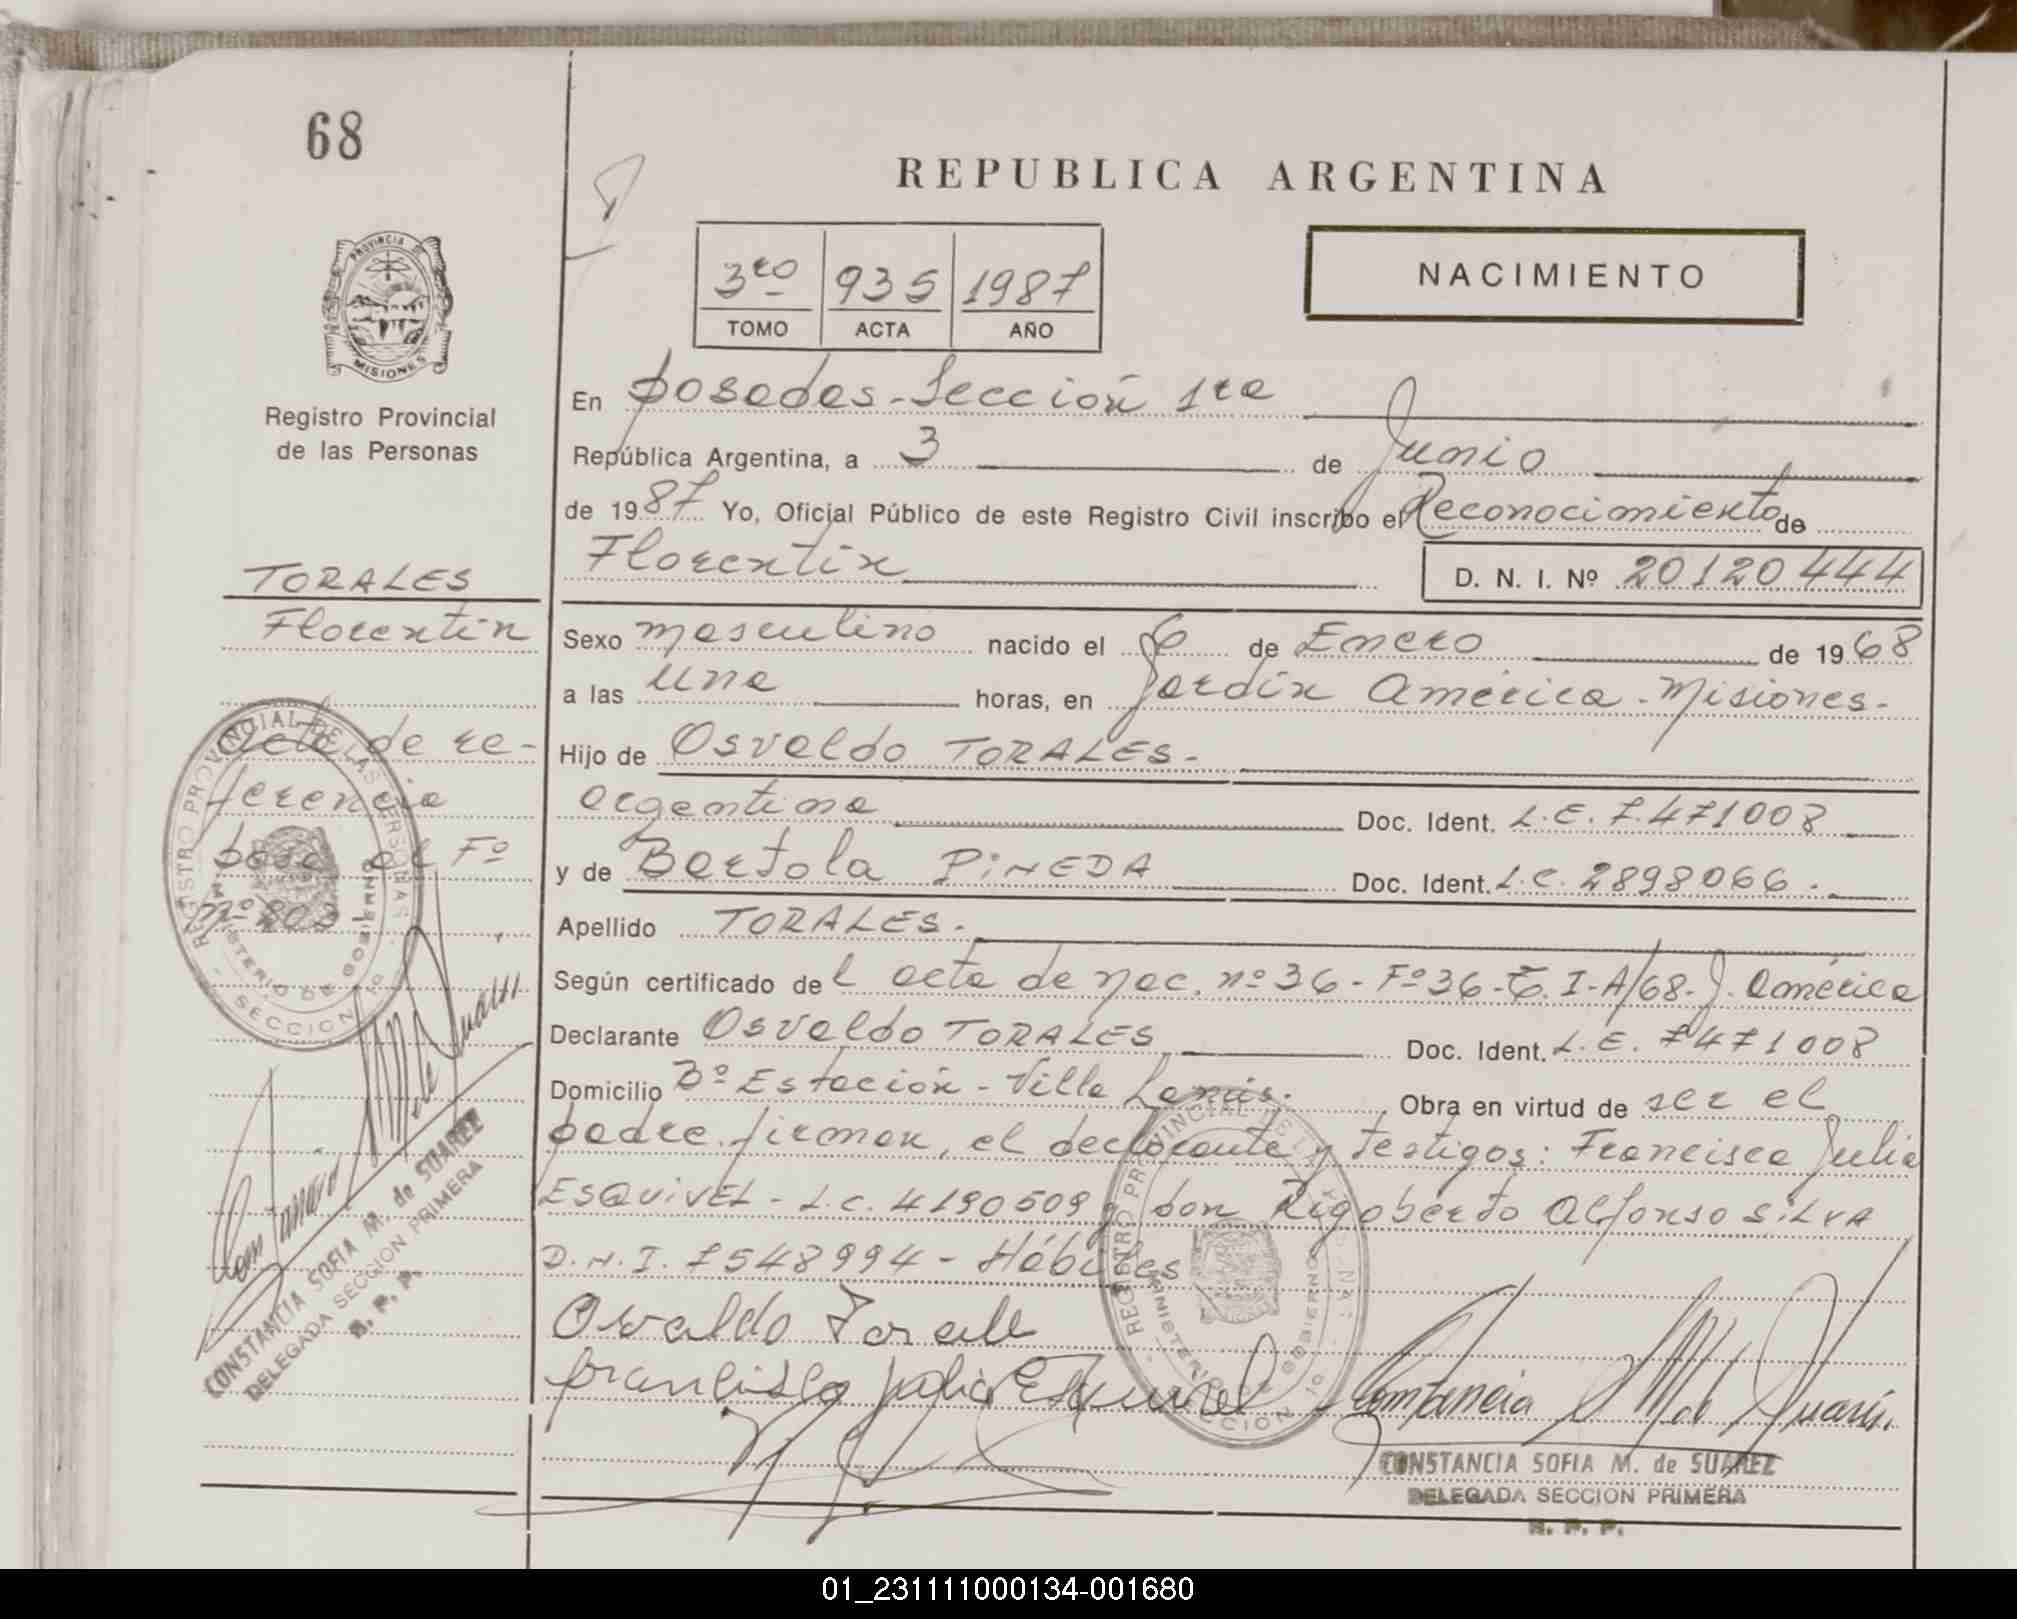 68
REPUBLICA ARGENTINA
3ro 935 1987
TOMO ACTA AÑO
NACIMIENTO
PROVINCIA DE
MISIONES
Registro Provincial
de las Personas
En Posadas - Sección 1ra
República Argentina, a 3 de Junio
de 1987 Yo, Oficial Público de este Registro Civil inscribo el Reconocimiento de
Florentín D. N. I. Nº 20120444
TORALES
Florentín
Sexo masculino nacido el 6 de Enero de 1968
a las una horas, en Jardín América - Misiones -
Hijo de Osvaldo TORALES -
argentina Doc. Ident. L.E. 7.471008
y de Bartola PINEDA Doc. Ident. L.C. 2898066.
Apellido TORALES.
Según certificado del acta de nac. nº 36 - Fº 36 - T. I - A/68 - J. América
Declarante Osvaldo TORALES Doc. Ident. L.E. 7471008
Domicilio Bº Estación - Villa Lanús. Obra en virtud de ser el
padre. firman, el declarante y testigos: Francisca Julia
ESQUIVEL - L.C. 4190509 y don Rigoberto Alfonso SILVA
D.N.I. 7548994 - Hábiles
Acta de re-
ferencia
pasa al Fº
nº 203
REGISTRO PROVINCIAL DE LAS PERSONAS
MINISTERIO DE GOBIERNO
SECCION 1a
CONSTANCIA SOFIA M. de SUAREZ
DELEGADA SECCION PRIMERA
R. P. P.
Osvaldo Torale
Francisca Julia Esquivel
REGISTRO PROVINCIAL DE LAS PERSONAS
MINISTERIO DE GOBIERNO
SECCION 1a
Constancia S M de Suarez
CONSTANCIA SOFIA M. de SUAREZ
DELEGADA SECCION PRIMERA
R. P. P.
01_231111000134-001680